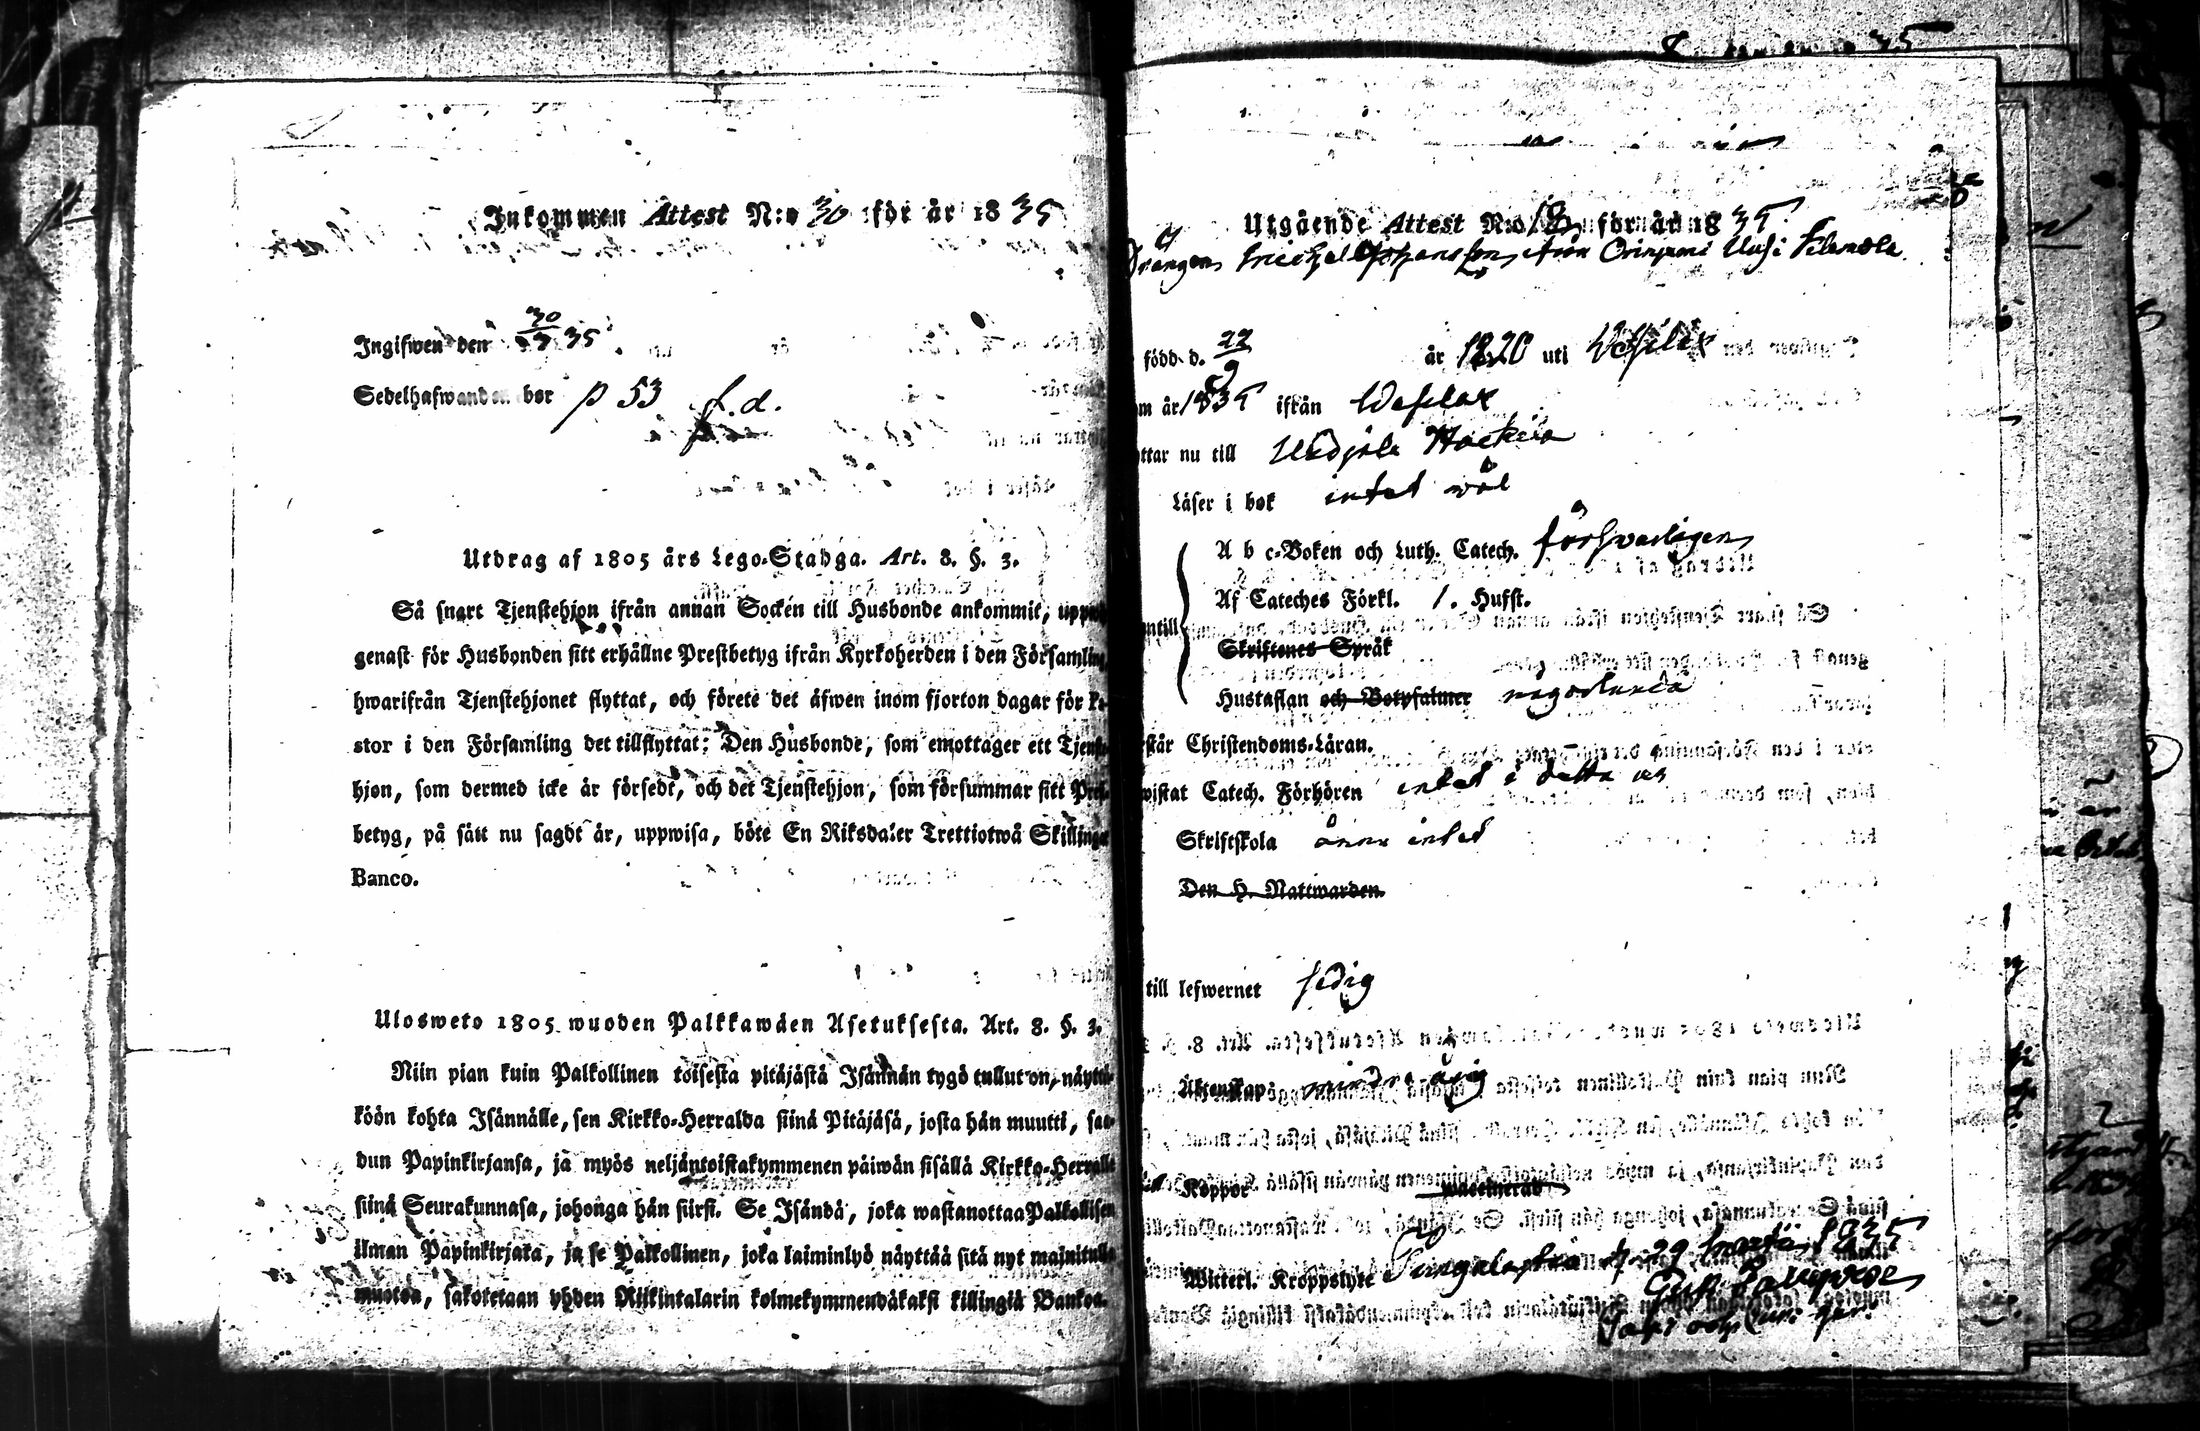 Inkommen Attest N:o 30 för år 1835
Ingifwen den 30/3 35.
Sedelhafwanden bor p 53 f.d.
Utdrag af 1805 års Lego-Stadga. Art. 8. §. 3.
Så snart Tjenstehjon ifrån annan Socken till Husbonde ankommit, uppw
genast för Husbonden sitt erhållne Prestbetyg ifrån Kyrkoherden i den Församling
hwarifrån Tjenstehjonet flyttat, och förete det äfwen inom fjorton dagar för Pa-
stor i den Församling det tillflyttat: Den Husbonde, som emottager ett Tjenste-
hjon, som dermed icke är försedt, och det Tjenstehjon, som försummar sitt Prest-
betyg, på sätt nu sagdt är, uppwisa, böte En Riksdaler Trettiotwå Skillingar
Banco.
Ulosweto 1805 wuoden Palkkawäen Asetuksesta. Art. 8. §. 3.
Niin pian kuin Palkollinen toisesta pitäjästä Isännän tygö tullut on, näyttä-
köön kohta Isännälle, sen Kirkko-Herralda siinä Pitäjäsä, josta hän muutti, saa-
dun Papinkirjansa, ja myös neljäntoistakymmenen päiwän sisällä Kirkko-Herralle
siinä Seurakunnasa, johonga hän siirsi. Se Isändä, joka wastanottaa Palkollisen
ilman Papinkirjata, ja se Palkollinen, joka laiminlyö näyttää sitä nyt mainitulla
muotoa, sakotetaan yhden Riikintalarin kolmekymmendäkaksi killingiä Bankoa.
Utgående Attest N:o 18 för år 1835
Drängen Michel Johansson från
född d. 22/9 år 1820 uti
m år 1835 ifrån Wesilax
ttar nu till Udjala
Läser i bok intet wäl
A b c-Boken och Luth. Catech. försvarligen
Af Cateches Förkl. 1. Hufst.
ntill
Skriftenes Språk
Hustaflan och Botpsalmer någorlunda
rstår Christendoms-Läran.
wistat Catech. Förhören intet i detta år
Skriftskola ännu intet
Den H. Nattwarden
till lefwernet sedig
Äktenskap minderårig
Koppor vaccinerad
Witterl. Kroppslyte
d. 29 1835
Gust.